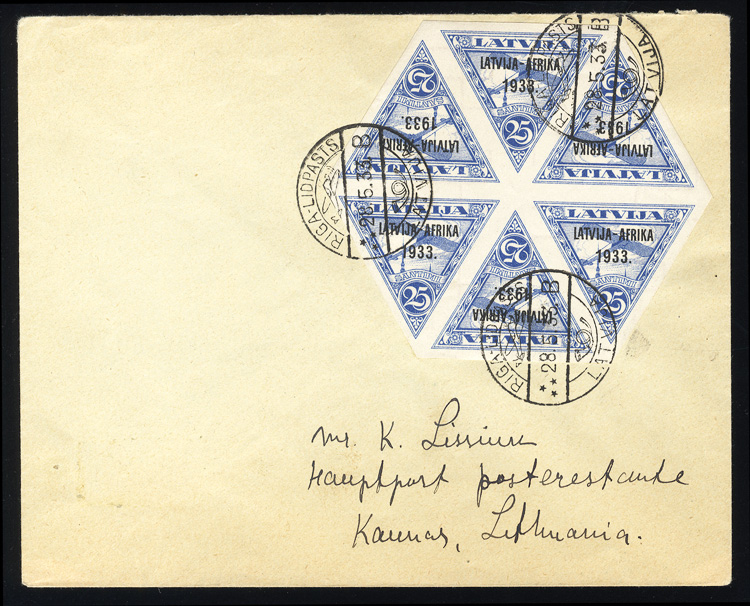 LATVIJA
LATVIJA-AFRIKA
1933.
25
25
1933.
LATVIJA-AFRIKA
LATVIJA
25
1933.
LATVIJA-AFRIKA
LATVIJA
RIGA LIDPASTS
28.5.33. B
LATVIJA
RIGA LIDPASTS
**28.5.33. B
LATVIJA
LATVIJA
LATVIJA-AFRIKA
1933.
25
25
1933.
LATVIJA-AFRIKA
LATVIJA
LATVIJA
LATVIJA-AFRIKA
1933.
25
RIGA LIDPASTS
**28. B
LATVIJA
Mr. K.
Hauptpost posterestante
Kaunas, Lithuania.